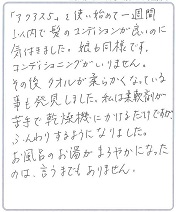 「アクアス5」を使い始めて一週間
以内で髪のコンディションが良いのに
気付きました。娘も同様です。
コンディショニングがいりません。
その後 タオルが柔らかくなっている
事も発見しました。私は柔軟剤が
苦手で乾燥機にかけるだけですが、
ふんわりするようになりました。
お風呂のお湯がまろやかになった
のは、言うまでもありません。